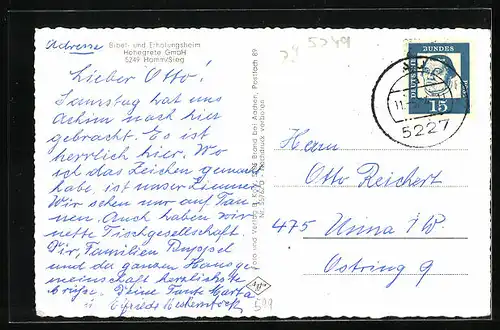 Adresse
Bibel- und Erholungsheim
Hohegrete GmbH
5249 Hamm/Sieg
Lieber Otto!
Samstag hat uns
Achim nach hier
gebracht. Es ist
herrlich hier. Wo
ich das Zeichen gemacht
habe, ist unser Zimmer.
Wir sehen nur auf Tan-
nen. Auch haben wir
nette Tischgesellschaft.
Dir, Familien
und der ganzen Hausge-
meinschaft herzlichste
Grüße. Deine Tante Marta
u. Elfriede
599
Foto und Verlag Brand Aachen, Postfach 89
Nachdruck verboten
5249
DEUTSCHE BUNDESPOST
15
5227
Herrn
Otto Reichert
475 Unna i/W.
Ostring 9